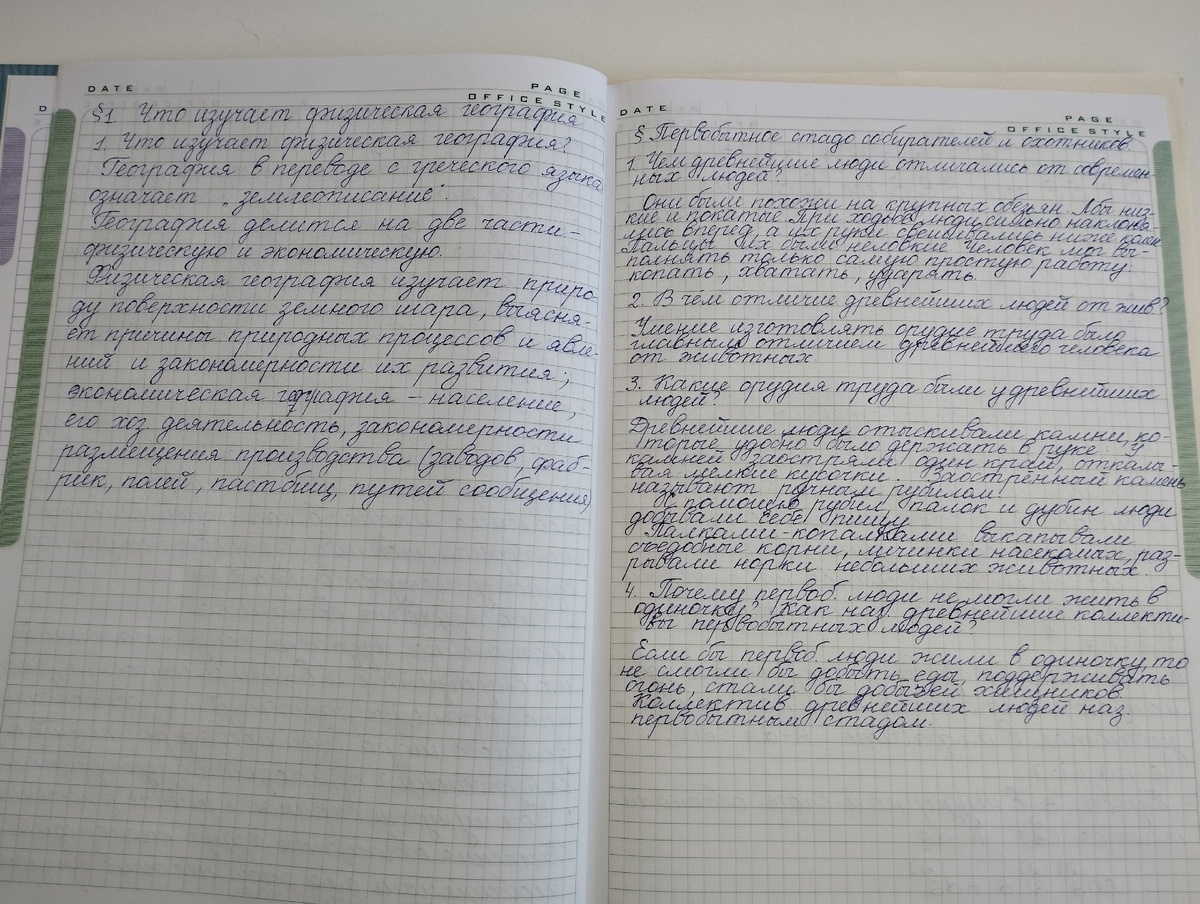 DATE
PAGE
OFFICE STYLE
§1 Что изучает физическая география
1. Что изучает физическая география?
География в переводе с греческого языка
означает „землеописание".
География делится на две части –
физическую и экономическую.
Физическая география изучает приро-
ду поверхности земного шара, выясня-
ет причины природных процессов и явле-
ний и закономерности их развития;
экономическая география – население,
его хоз деятельность, закономерности
размещения производства (заводов, фаб-
рик, полей, пастбищ, путей сообщения)
D
DATE
PAGE
OFFICE STYLE
§ Первобытное стадо собирателей и охотников
1. Чем древнейшие люди отличались от современ
ных людей?
Они были похожи на крупных обезьян. Лбы низ-
кие и покатые. При ходьбе люди сильно наклоня-
лись вперед, а их руки свешивались ниже колен
Пальцы их были неловкие. Человек мог вы-
полнять только самую простую работу:
копать, хватать, ударять.
2. В чём отличие древнейших людей от жив?
Умение изготовлять орудие труда было
главным отличием древнейшего человека
от животных
3. Какие орудия труда были у древнейших
людей?
Древнейшие люди отыскивали камни, ко-
торые удобно было держать в руке. У
камней заостряли один край, откалы-
вая мелкие кусочки. Заостренный камень
называют ручным рубилом
С помощью рубил, палок и дубин люди
добывали себе пищу
Палками-копалками выкапывали
съедобные корни, личинки насекомых, раз-
рывали норки небольших животных.
4. Почему первоб. люди не могли жить в
одиночку? Как наз. древнейшие коллекти-
вы первобытных людей?
Если бы первоб люди жили в одиночку, то
не смогли бы добыть еды, поддерживать
огонь, стали бы добычей хищников.
Коллектив древнейших людей наз
первобытным стадом.